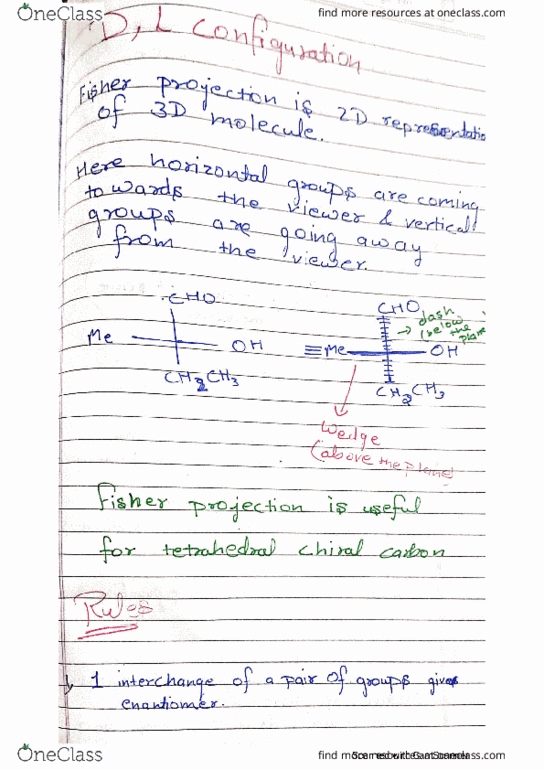 OneClass
find more resources at oneclass.com
D, L Configuration
Fisher projection is 2D representatio
of 3D molecule.
Here horizontal groups are coming
towards the viewer & vertical
groups are going away
from the viewer.
CHO
Me
OH
CH2CH3
CHO
→ dash
(below
the
plane
≡Me
OH
CH2CH3
Wedge
(above the plane)
Fisher projection is useful
for tetrahedral chiral carbon
Rules
1 interchange of a pair of groups gives
enantiomer.
OneClass
find more resources at oneclass.com